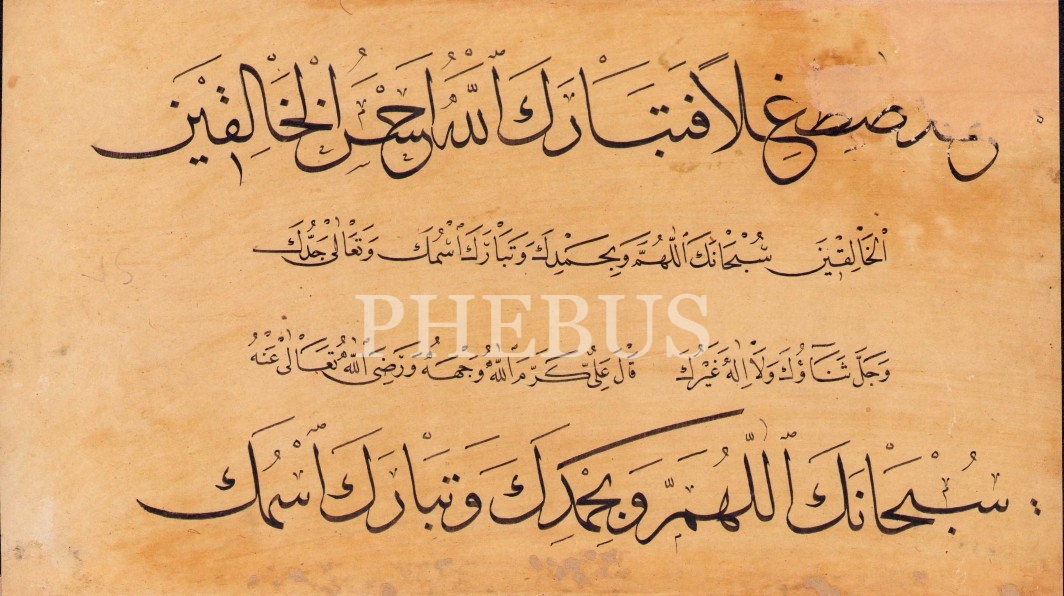 فتبارك الله احسن الخالقين
الخالقين سبحانك اللهم وبحمدك وتبارك اسمك وتعالى جدك
PHEBUS
وجل ثناؤك ولا اله غيرك قال علي كرم الله وجهه ورضى الله تعالى عنه
سبحانك اللهم وبحمدك وتبارك اسمك